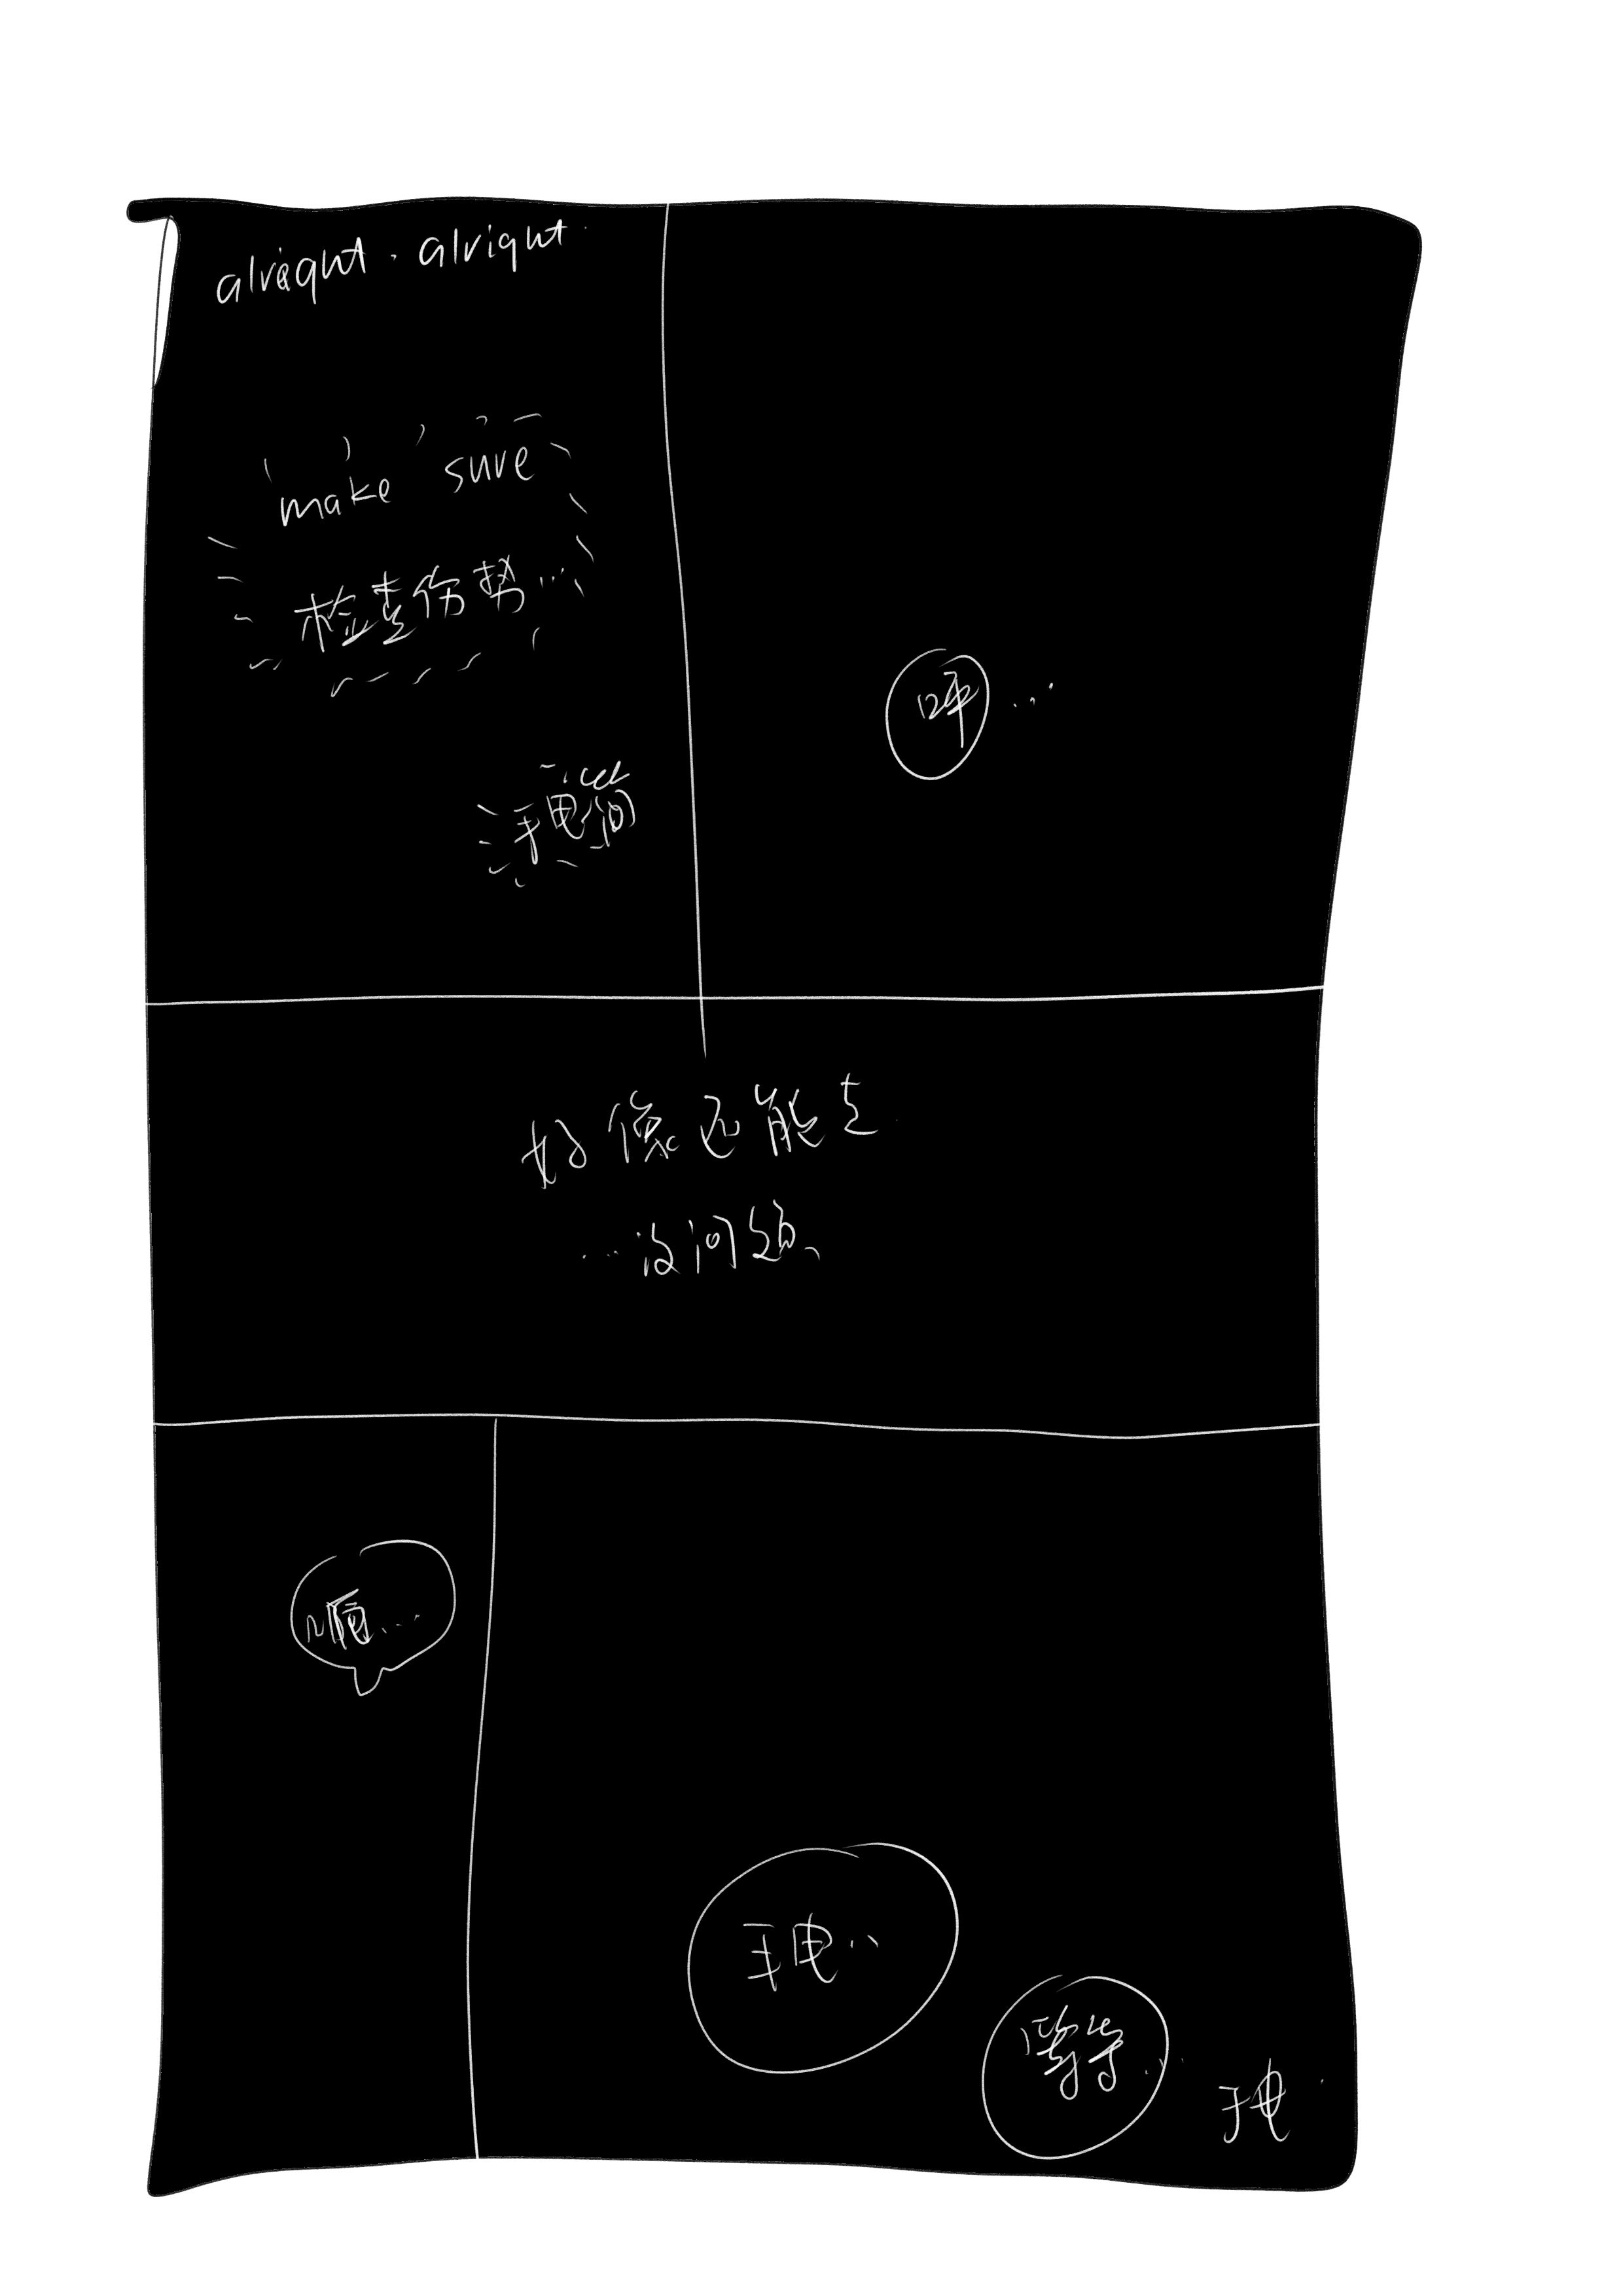 alright. alright.
make sure
检查伤势...
手电筒
呼...
好像还能走
...没问题、
顺...
手电...
等等...
手电.